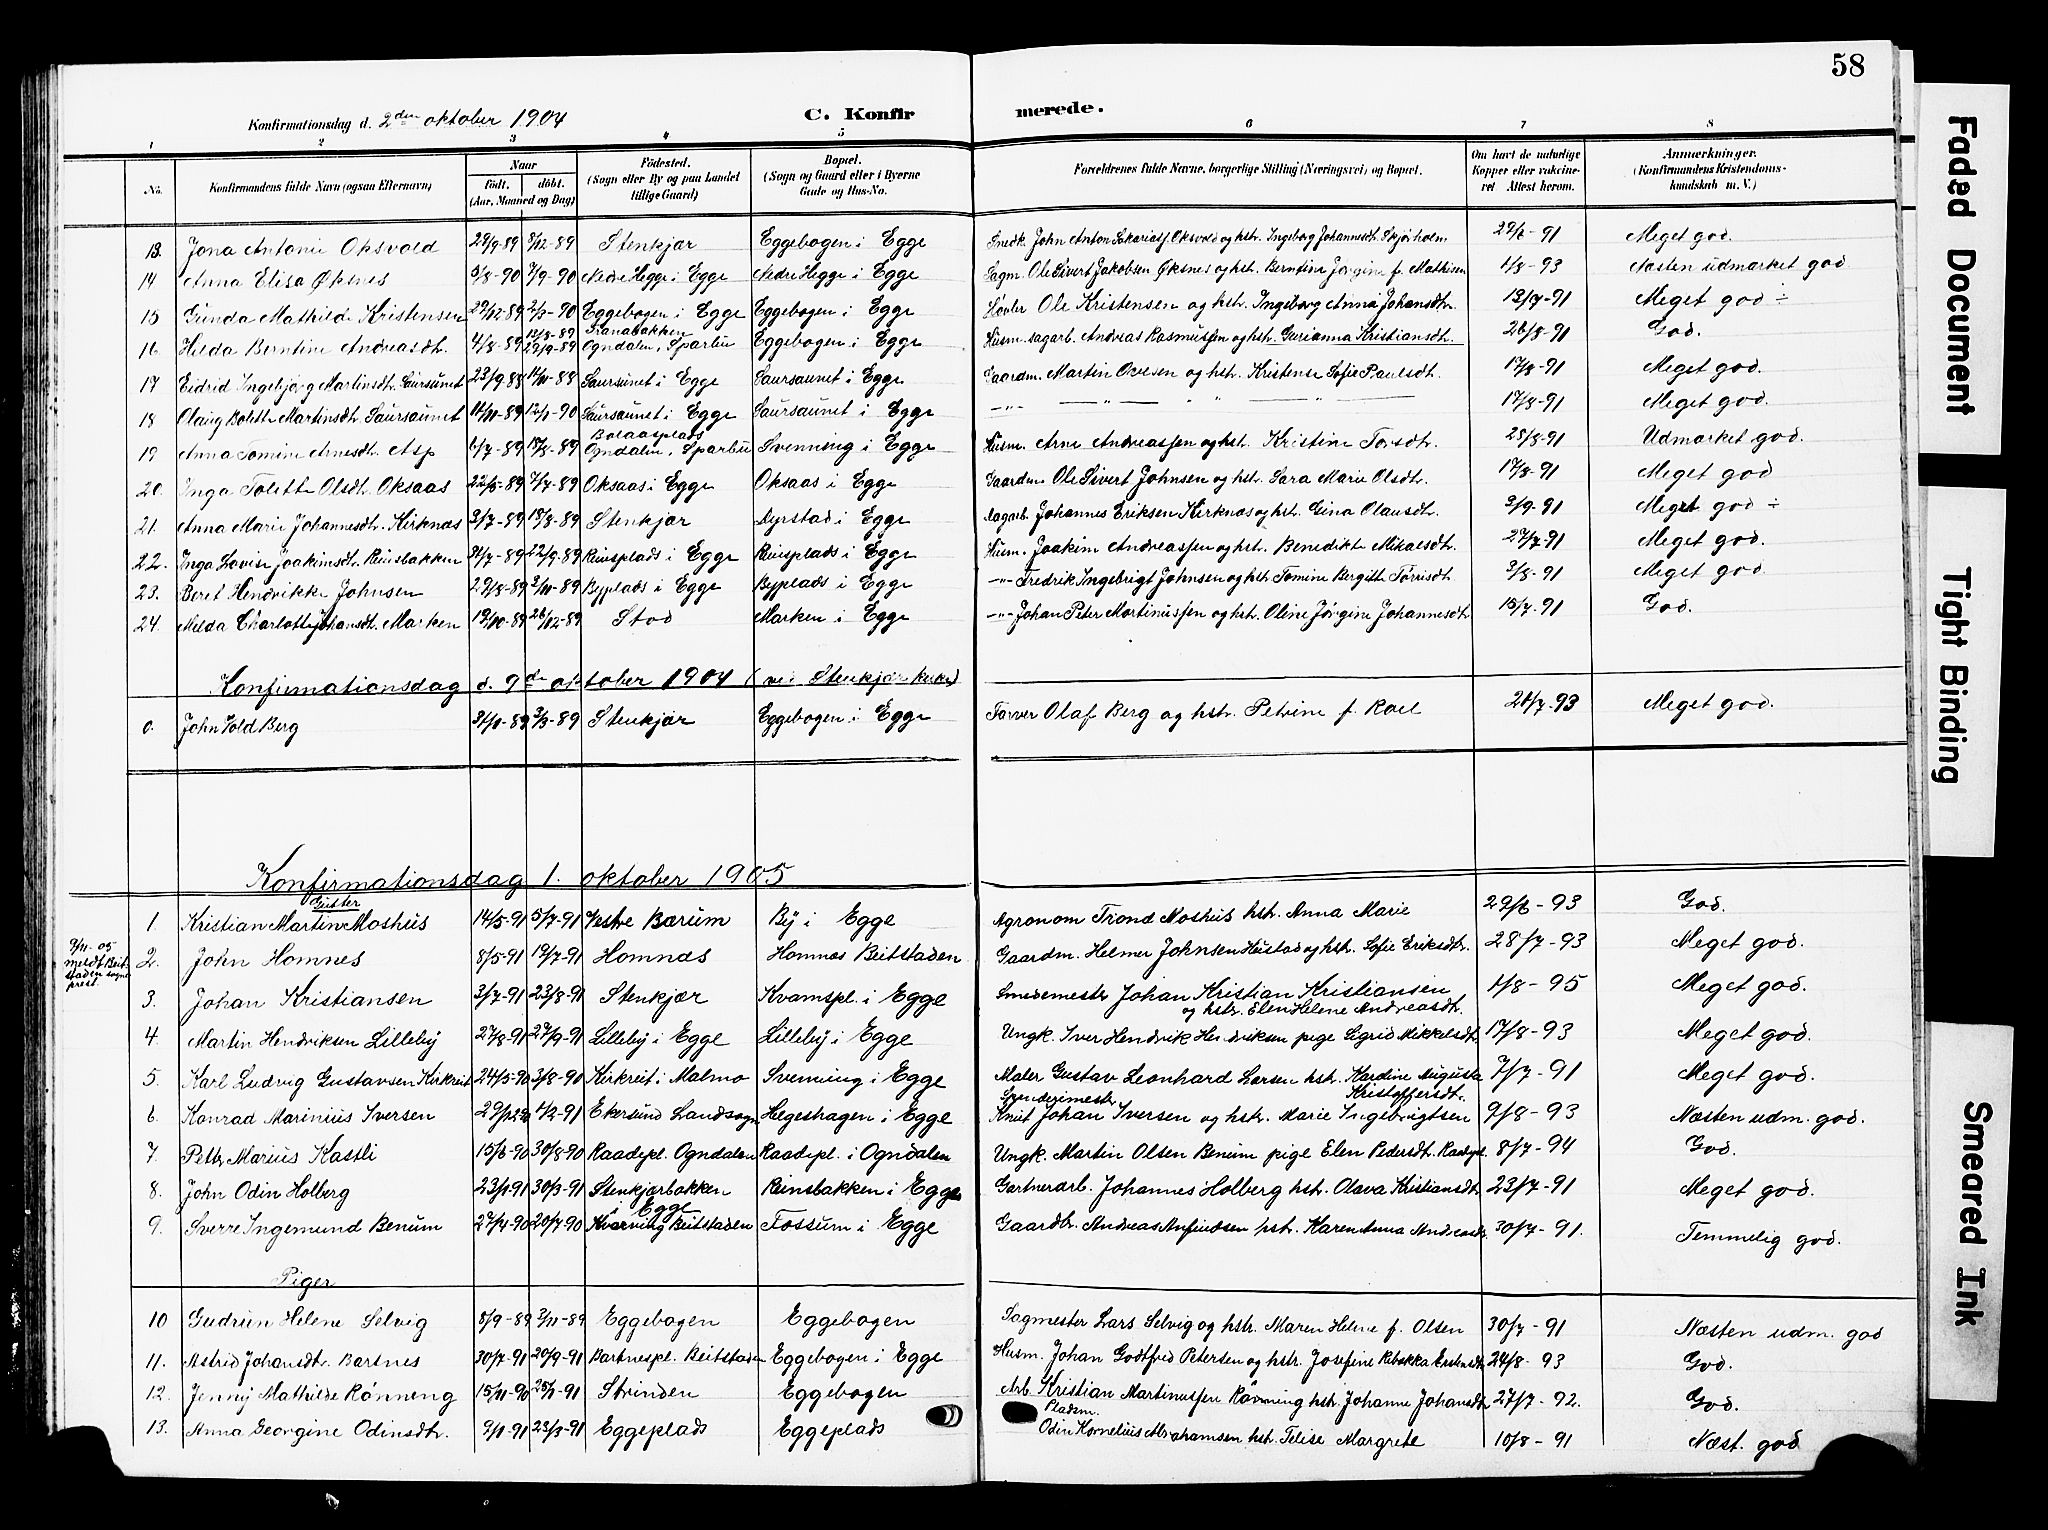 58
Konfirmationsdag d. 2den oktober 1904
C. Konfirmerede.
1 2 3 4 5 6 7 8
No.
Konfirmandens fulde Navn (ogsaa Efternavn)
Naar
födt. döbt.
(Aar, Maaned og Dag)
Födested.
(Sogn eller By og paa Landet
tillige Gaard)
Bopæl.
(Sogn og Gaard eller i Byerne
Gade og Hus-No.
Forældrenes fulde Navne, borgerlige Stilling (Næringsvei) og Bopæl.
Om havt de naturlige
Kopper eller vakcine-
ret Attest herom.
Anmærkninger.
(Konfirmandens Kristendoms-
kundskab m. V.)
13. Jona Antonie Oksvold 29/9-89 Stenkjær Eggebogen i Egge Snedk. John Anton Oksvold og hstr. Ingeborg Johannesdtr. Skjørholm 29/6-91 Meget god.
14. Anna Elisa Øksnes 5/8-90 7/9-90 Nedre Hegge i Egge Nedre Hegge i Egge Sagm. Ole Sivert Jakobsen Øksnes og hstr. Berntine Jørgine f. Mathisen 1/8-93 Næsten udmærket god
15 Gunda Mathilde Kristensen 29/12-89 2/3-90 Eggebogen i Egge Eggebogen i Egge Høvler Ole Kristensen og hstr. Ingeborg Anna Johansdtr. 13/7-91 Meget god ÷
16 Hilda Berntine Andreasdtr. 4/8-89 29/9-89 Ogndalen, Sparbu Eggebogen i Egge Husm. sagarb. Andreas Rasmussen og hstr. Gurianna Kristiansdtr. 26/8-91 God.
17 Eidrid Ingebjørg Martinsdtr. Saursunet 23/9-88 11/11-88 Saursunet i Egge Saursaunet i Egge Gaardm. Martin Ovesen og hstr. Kristense Sofie Paulsdt. 17/8-91 Meget god.
18 Olaug Bolette Martinsdt. Saursaunet 11/11-89 12/1-90 Saursaunet i Egge Saursaunet i Egge —"— — " — " " — " — 17/8-91 Meget god.
19 Anna Tomine Arnesdtr. Asp 6/7-89 18/8-89 Bolaasplads Ogndalen, Sparbu Svenning i Egge Husm. Arne Andreassen og hstr. Kristine Torsdtr. 25/8-91 Udmærket god.
20. Inga Tolette Olsdtr. Oksaas 22/5-89 7/7-89 Oksaas i Egge Oksaas i Egge Gaardm. Ole Sivert Johnsen og hstr. Sara Marie Olsdtr. 17/8-91 Meget god
21. Anna Marie Johannesdtr. Kirknæs 3/7-89 18/8-89 Stenkjær Dyrstad i Egge Dagarb. Johannes Eriksen Kirknæs og hstr. Gina Olausdtr. 3/9-91 Meget god ÷
22. Inga Lovise Joakimsdt. Reinsbakken 24/7-89 22/9-89 Reinsplads i Egge Reinsplads i Egge Husm. Joakim Andreassen og hstr. Benedikte Mikalsdtr. 27/7-91 Meget god.
23. Beret Hendrikke Johnsen 29/8-89 3/11-89 Byplads i Egge Byplads i Egge —"— Fredrik Ingebrigt Johnsen og hstr. Tomine Bergitte Torrisdt. 3/8-91 Meget god
24. Milda Charlotte Johansdt. Marken 19/10-89 26/12-89 Stod Marken i Egge —"— Johan Peter Martinussen og hstr. Oline Jørgine Johannesdtr 15/7-91 God.
Konfirmationsdag d. 9de oktober 1904 (ved Stenkjær kirke)
0. John Vold Berg 3/3-89 Stenkjær Eggebogen i Egge Farver Olaf Berg og hstr. Petrine f. Roel 24/7-93 Meget god.
Konfirmationsdag 1. oktober 1905
1. Kristian Martin Guster Moshus 14/5-91 5/7-91 Vestre Bærum By i Egge Agronom Trond Moshus hstr. Anna Marie 29/6-93 God.
9/11-05
meldt Beit-
staden sogne-
prest.
2. John Homnes 8/5-91 19/7-91 Homnæs Homnæs Beitstaden Gaardm. Helmer Johnsen Hustad og hstr. Sofie Eriksdtr. 28/7-93 Meget god.
3. Johan Kristiansen 3/7-91 23/8-91 Stenkjær Kvamspl. i Egge Smedemester Johan Kristian Kristiansen
og hstr. Elen Helene Andreasdtr. 1/8-95 Meget god.
4. Martin Hendriksen Lilleby 27/8-91 27/9-91 Lilleby i Egge Lilleby i Egge Ungk. Iver Hendrik Hendriksen pige Sigrid Mikkelsdtr 17/8-93 Meget god.
5. Karl Ludvig Gustavsen Kirkreit 24/5-90 3/8-90 Kirkreit i Malmo Svenning i Egge Maler Gustav Leonhard Larsen hstr. Kardine Augusta
Kristoffersdt. 7/7-91 Meget god.
6. Konrad Marinius Iversen 4/2-91 Ekersund Landsogn Helgeshagen i Egge Knut Johan Iversen og hstr. Marie Ingebrigtsen 9/8-93 Næsten udm. god.
7. Petter Marius Kastli 15/6-90 30/8-90 Raadepl. Ogndalen Raadepl. i Ogndalen Ungk. Martin Olsen Benum pige Elen Pedersdt. Raadepl 8/7-94 God.
8. John Odin Holberg 23/1-91 30/3-91 Stenkjærbakken
i Egge Reinsbakken i Egge Gartnerarb. Johannes Holberg hstr. Olava Kristiansdtr 23/7-91 Meget god.
9. Sverre Ingemund Benum 27/4-90 20/7-90 Kvarning Beitstaden Fossum i Egge Gaardbr. Andreas Anfindsen hstr. Karen Anna Andreasdtr 30/7-91. Temmelig god.
Piger
10 Gudrun Helene Selvig 5/9-89 3/11-89 Eggebogen Eggebogen Sagmester Lars Selvig og hstr. Maren Helene f. Olsen 30/7-91 Næsten udm. god
11. Astrid Johansdtr. Bartnes 30/7-91 20/9-91 Bartnespl. Beitstaden Eggebogen i Egge Husm. Johan Godtfred Petersen og hstr. Josefine Rebekka 24/8-93 God.
12. Jenny Mathilde Rönning 15/11-90 25/1-91 Strinden Eggebogen Arb. Kristian Martinussen Rönning hstr. Johanne Johansdtr 27/7-92. God.
13. Anna Georgine Odinsdtr. 9/1-91 23/3-91 Eggeplads Eggeplads Pladsm.
Odin Kornelius Abrahamsen hstr. Telise Margrete 10/8-91 Næst. god
Faded Document
Tight Binding
Smeared Ink